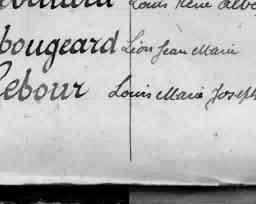 Louis René Albe
bougeard Léon Jean Marie
Lebour Louis Marie Joseph